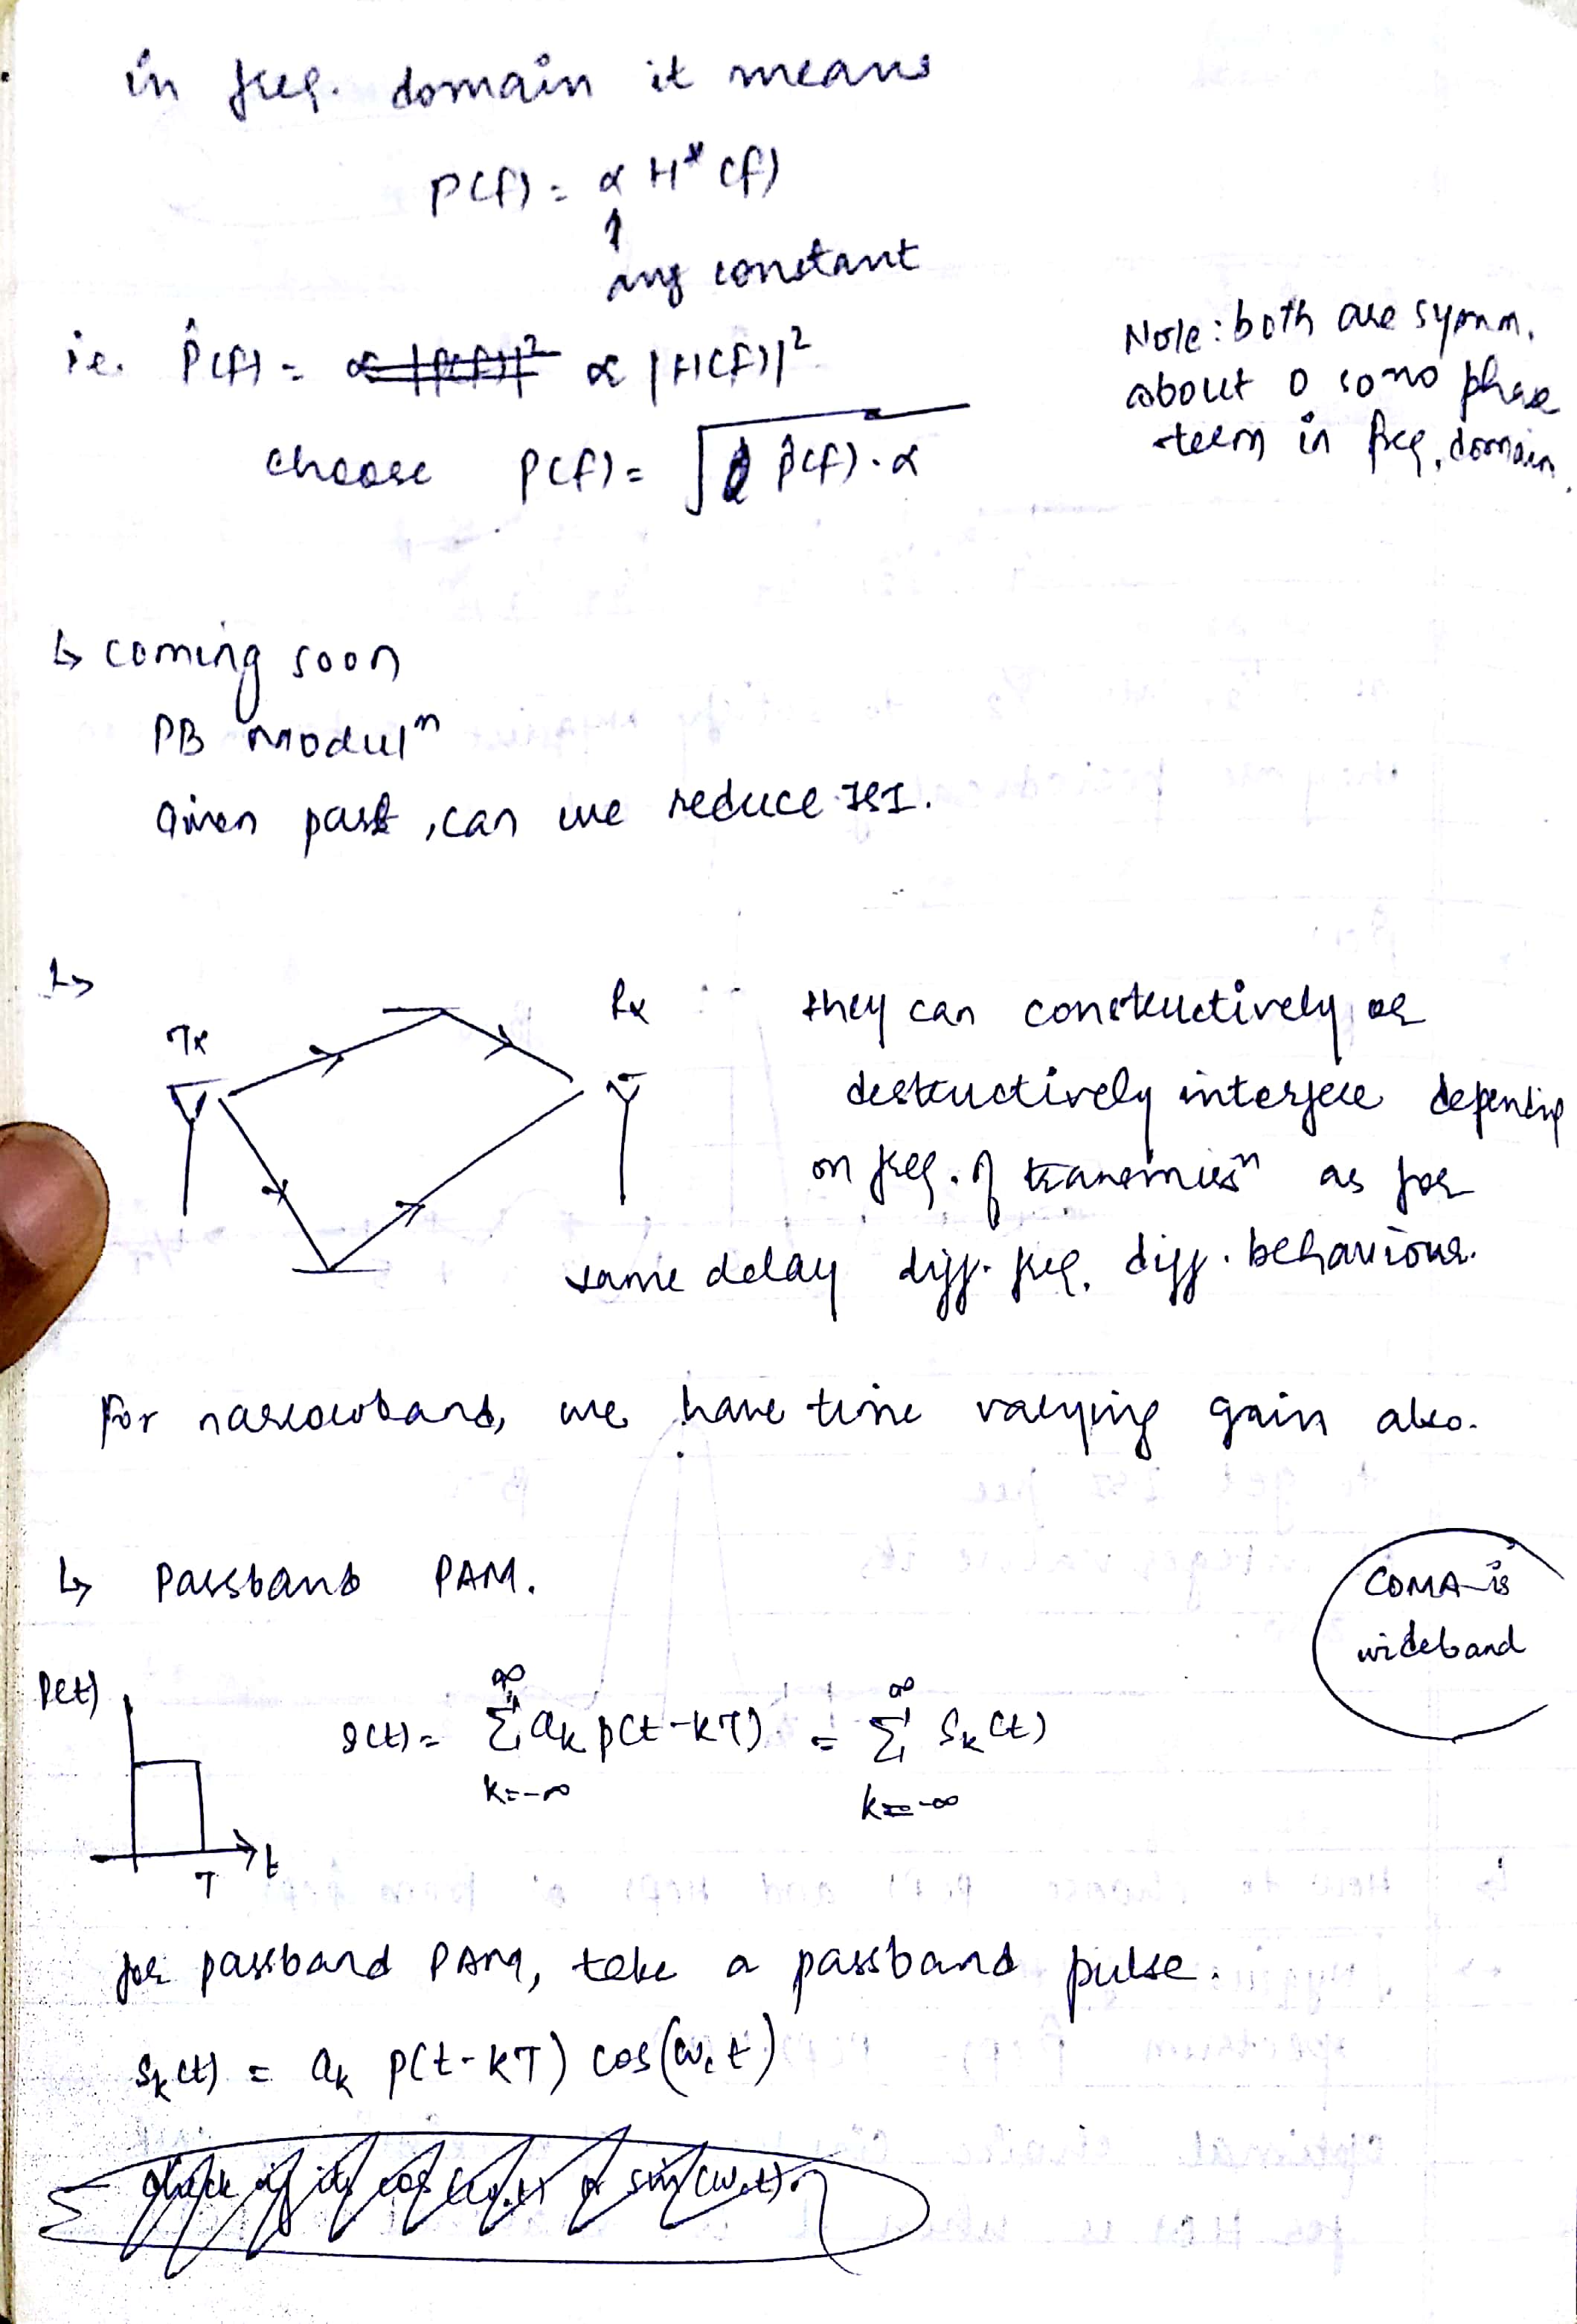 in freq. domain it means
P(f) = α H*(f)
↑
any constant
i.e. P̂(f) = α |H(f)|²
choose P(f) = √(P̂(f)·α)
Note: both are symm.
about 0 so no phase
term in freq. domain.
↳ coming soon
PB Modulⁿ
Given past, can we reduce ISI.
↳
Tx
Rx
they can constructively or
destructively interfere depending
on freq. of transmissⁿ as for
same delay diff. freq. diff. behaviour.
For narrowband, we have time varying gain also.
↳ Passband PAM.
CDMA is
wideband
P(t)
T
t
s(t) = ∞Σk=-∞ ak p(t-kT) = ∞Σk=-∞ sk(t)
for passband PAM, take a passband pulse.
sk(t) = ak p(t-kT) cos(ωct)